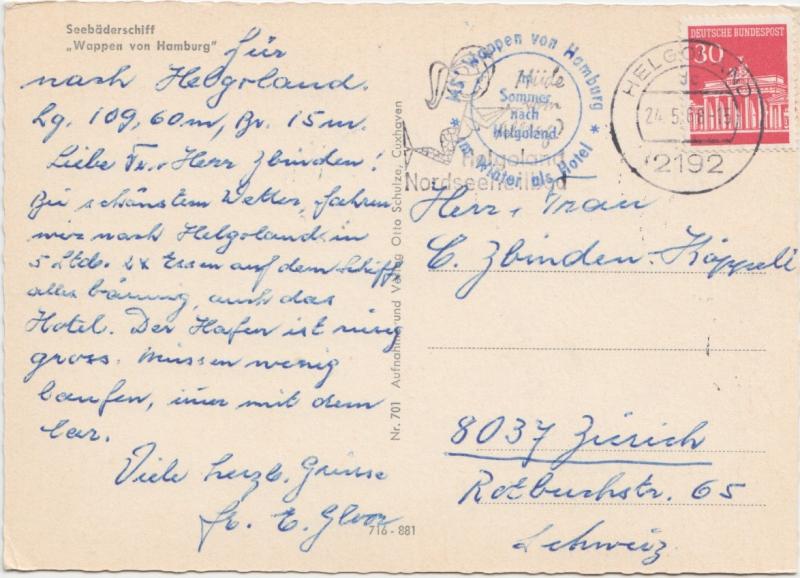 Seebäderschiff
„Wappen von Hamburg“
für
nach Helgoland.
Lg. 109,60 m, Br. 15 m.
Liebe Fr. Herr Zbinden!
Bei schönstem Wetter, fahren
wir nach Helgoland in
5 Std. 2x Essen auf dem Schiff
alles bäumig, auch das
Hotel. Der Hafen ist riesig
gross. Müssen wenig
laufen, imer mit dem
Car.
Viele herzl. Grüsse
Fr. E.
716 - 881
Nr. 701 Aufnahme und Verlag Otto Schulze, Cuxhaven
* MS' Wappen von Hamburg *
Im Sommer
nach
Helgoland
im Winter als Hotel
Müde
Helgoland
Nordseeheilbad
HELGOLAND
24.5.68
2192
30
DEUTSCHE BUNDESPOST
Herr, Frau
C. Zbinden-Käppeli
8037 Zürich
Rotbuchstr. 65
Schweiz